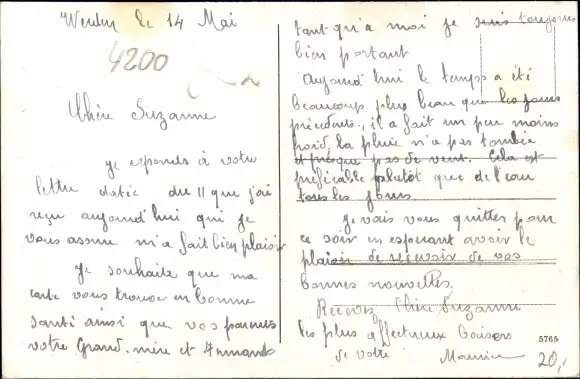 le 14 Mai
4200
Chère Suzanne
Je réponds à votre
lettre datée du 11 que j'ai
reçu aujourd'hui qui je
vous assure m'a fait bien plaisir
Je souhaite que ma
carte vous trouve en bonne
santé ainsi que vos parents
votre Grand-mère et Armand
tant qu'a moi je suis toujours
bien portant
Aujourd'hui le temps a été
beaucoup plus beau que les jours
précédents, il a fait un peu moins
froid, la pluie n'a pas tombée
et presque pas de vent. Cela est
préférable plutôt que de l'eau
tous les jours.
Je vais vous quitter pour
ce soir en espérant avoir le
plaisir de recevoir de vos
bonnes nouvelles.
Recevez Chère Suzanne
les plus affectueux baisers
de votre Maurice
5765
20,-